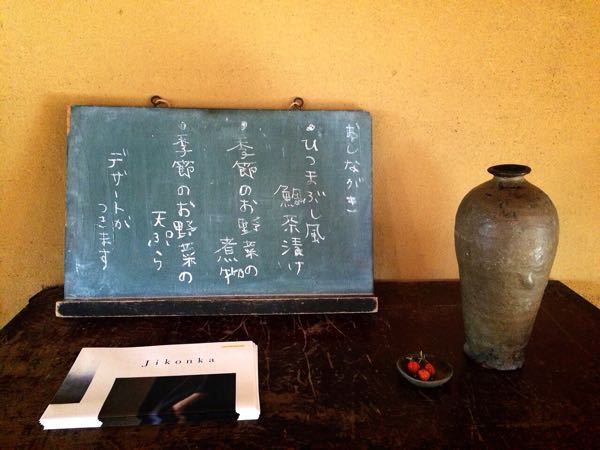 おしながき
•ひつまぶし風
鯛茶漬け
•季節のお野菜の
煮物
•季節のお野菜の
天ぷら
デザートが
つきます
Jikonka